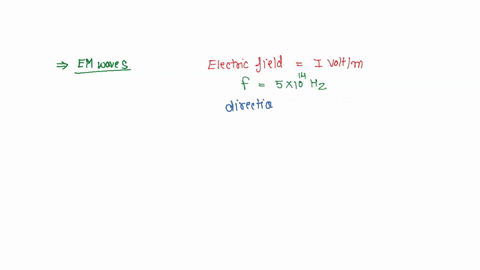 ⇒ EM waves
Electric field = I Volt/m
f = 5×10¹⁴ Hz
directio